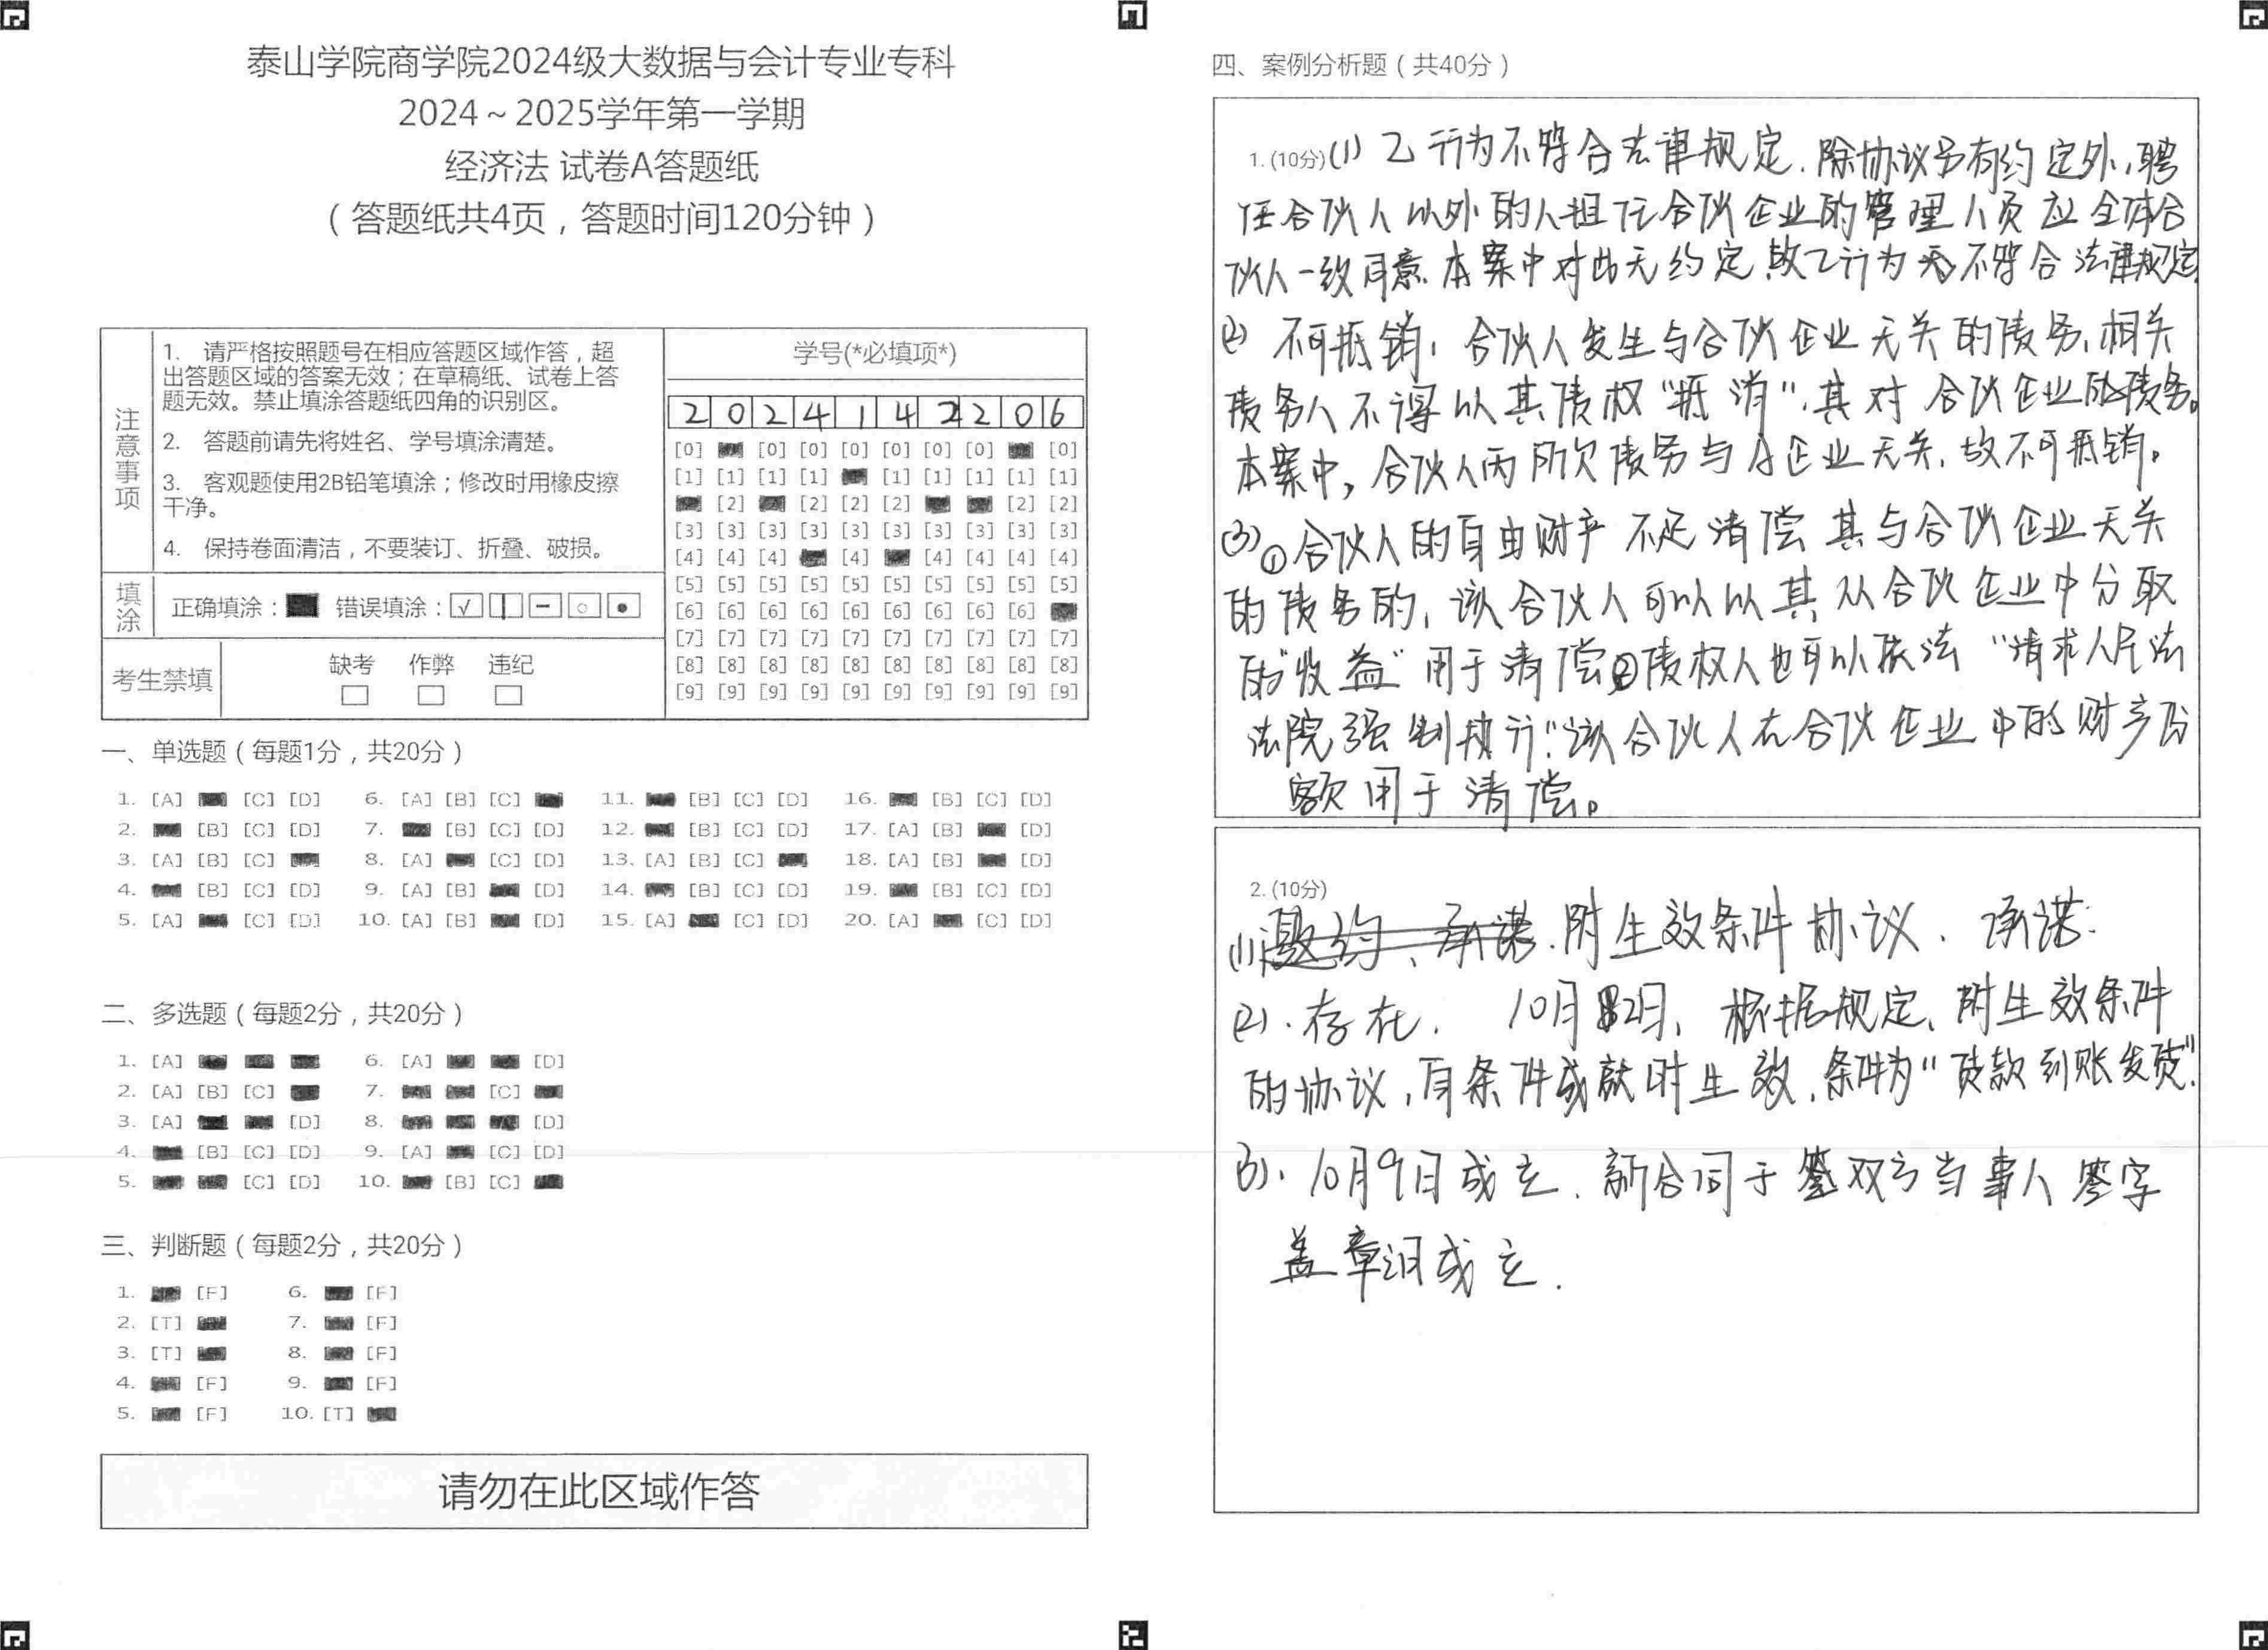 泰山学院商学院2024级大数据与会计专业专科
2024～2025学年第一学期
经济法 试卷A答题纸
（答题纸共4页，答题时间120分钟）
注意事项
1. 请严格按照题号在相应答题区域作答，超
出答题区域的答案无效；在草稿纸、试卷上答
题无效。禁止填涂答题纸四角的识别区。
2. 答题前请先将姓名、学号填涂清楚。
3. 客观题使用2B铅笔填涂；修改时用橡皮擦
干净。
4. 保持卷面清洁，不要装订、折叠、破损。
填涂
正确填涂： 错误填涂：
考生禁填
缺考 作弊 违纪
学号(*必填项*)
2 0 2 4 1 4 2 2 0 6
[0] [0] [0] [0] [0] [0] [0] [0]
[1] [1] [1] [1] [1] [1] [1] [1] [1]
[2] [2] [2] [2] [2] [2]
[3] [3] [3] [3] [3] [3] [3] [3] [3] [3]
[4] [4] [4] [4] [4] [4] [4] [4]
[5] [5] [5] [5] [5] [5] [5] [5] [5] [5]
[6] [6] [6] [6] [6] [6] [6] [6] [6]
[7] [7] [7] [7] [7] [7] [7] [7] [7] [7]
[8] [8] [8] [8] [8] [8] [8] [8] [8] [8]
[9] [9] [9] [9] [9] [9] [9] [9] [9] [9]
一、单选题（每题1分，共20分）
1. [A] [C] [D] 6. [A] [B] [C] 11. [B] [C] [D] 16. [B] [C] [D]
2. [B] [C] [D] 7. [B] [C] [D] 12. [B] [C] [D] 17. [A] [B] [D]
3. [A] [B] [C] 8. [A] [C] [D] 13. [A] [B] [C] 18. [A] [B] [D]
4. [B] [C] [D] 9. [A] [B] [D] 14. [B] [C] [D] 19. [B] [C] [D]
5. [A] [C] [D] 10. [A] [B] [D] 15. [A] [C] [D] 20. [A] [C] [D]
二、多选题（每题2分，共20分）
1. [A] 6. [A] [D]
2. [A] [B] [C] 7. [C]
3. [A] [D] 8. [D]
4. [B] [C] [D] 9. [A] [C] [D]
5. [C] [D] 10. [B] [C]
三、判断题（每题2分，共20分）
1. [F] 6. [F]
2. [T] 7. [F]
3. [T] 8. [F]
4. [F] 9. [F]
5. [F] 10. [T]
请勿在此区域作答
四、案例分析题（共40分）
1. (10分) (1) 乙行为不符合法律规定.除协议另有约定外,聘
任合伙人以外的人担任合伙企业的管理人员应全体合
伙人一致同意.本案中对此无约定,故乙行为不符合法律规定.
(2) 不可抵销,合伙人发生与合伙企业无关的债务,相关
债务人不得以其债权“抵消”其对合伙企业的债务。
本案中,合伙人丙所欠债务与A企业无关,故不可抵销。
(3)①合伙人的自由财产不足清偿其与合伙企业无关
的债务的,该合伙人可以以其从合伙企业中分取
的“收益”用于清偿②债权人也可以依法“请求人民法
法院强制执行”该合伙人在合伙企业中的财产份
额用于清偿。
2. (10分)
(1) 附生效条件协议、承诺:
(2).存在. 10月2日,根据规定,附生效条件
的协议,自条件成就时生效,条件为“货款到账发货”.
(3).10月9日成立.新合同于双方当事人签字
盖章日成立.